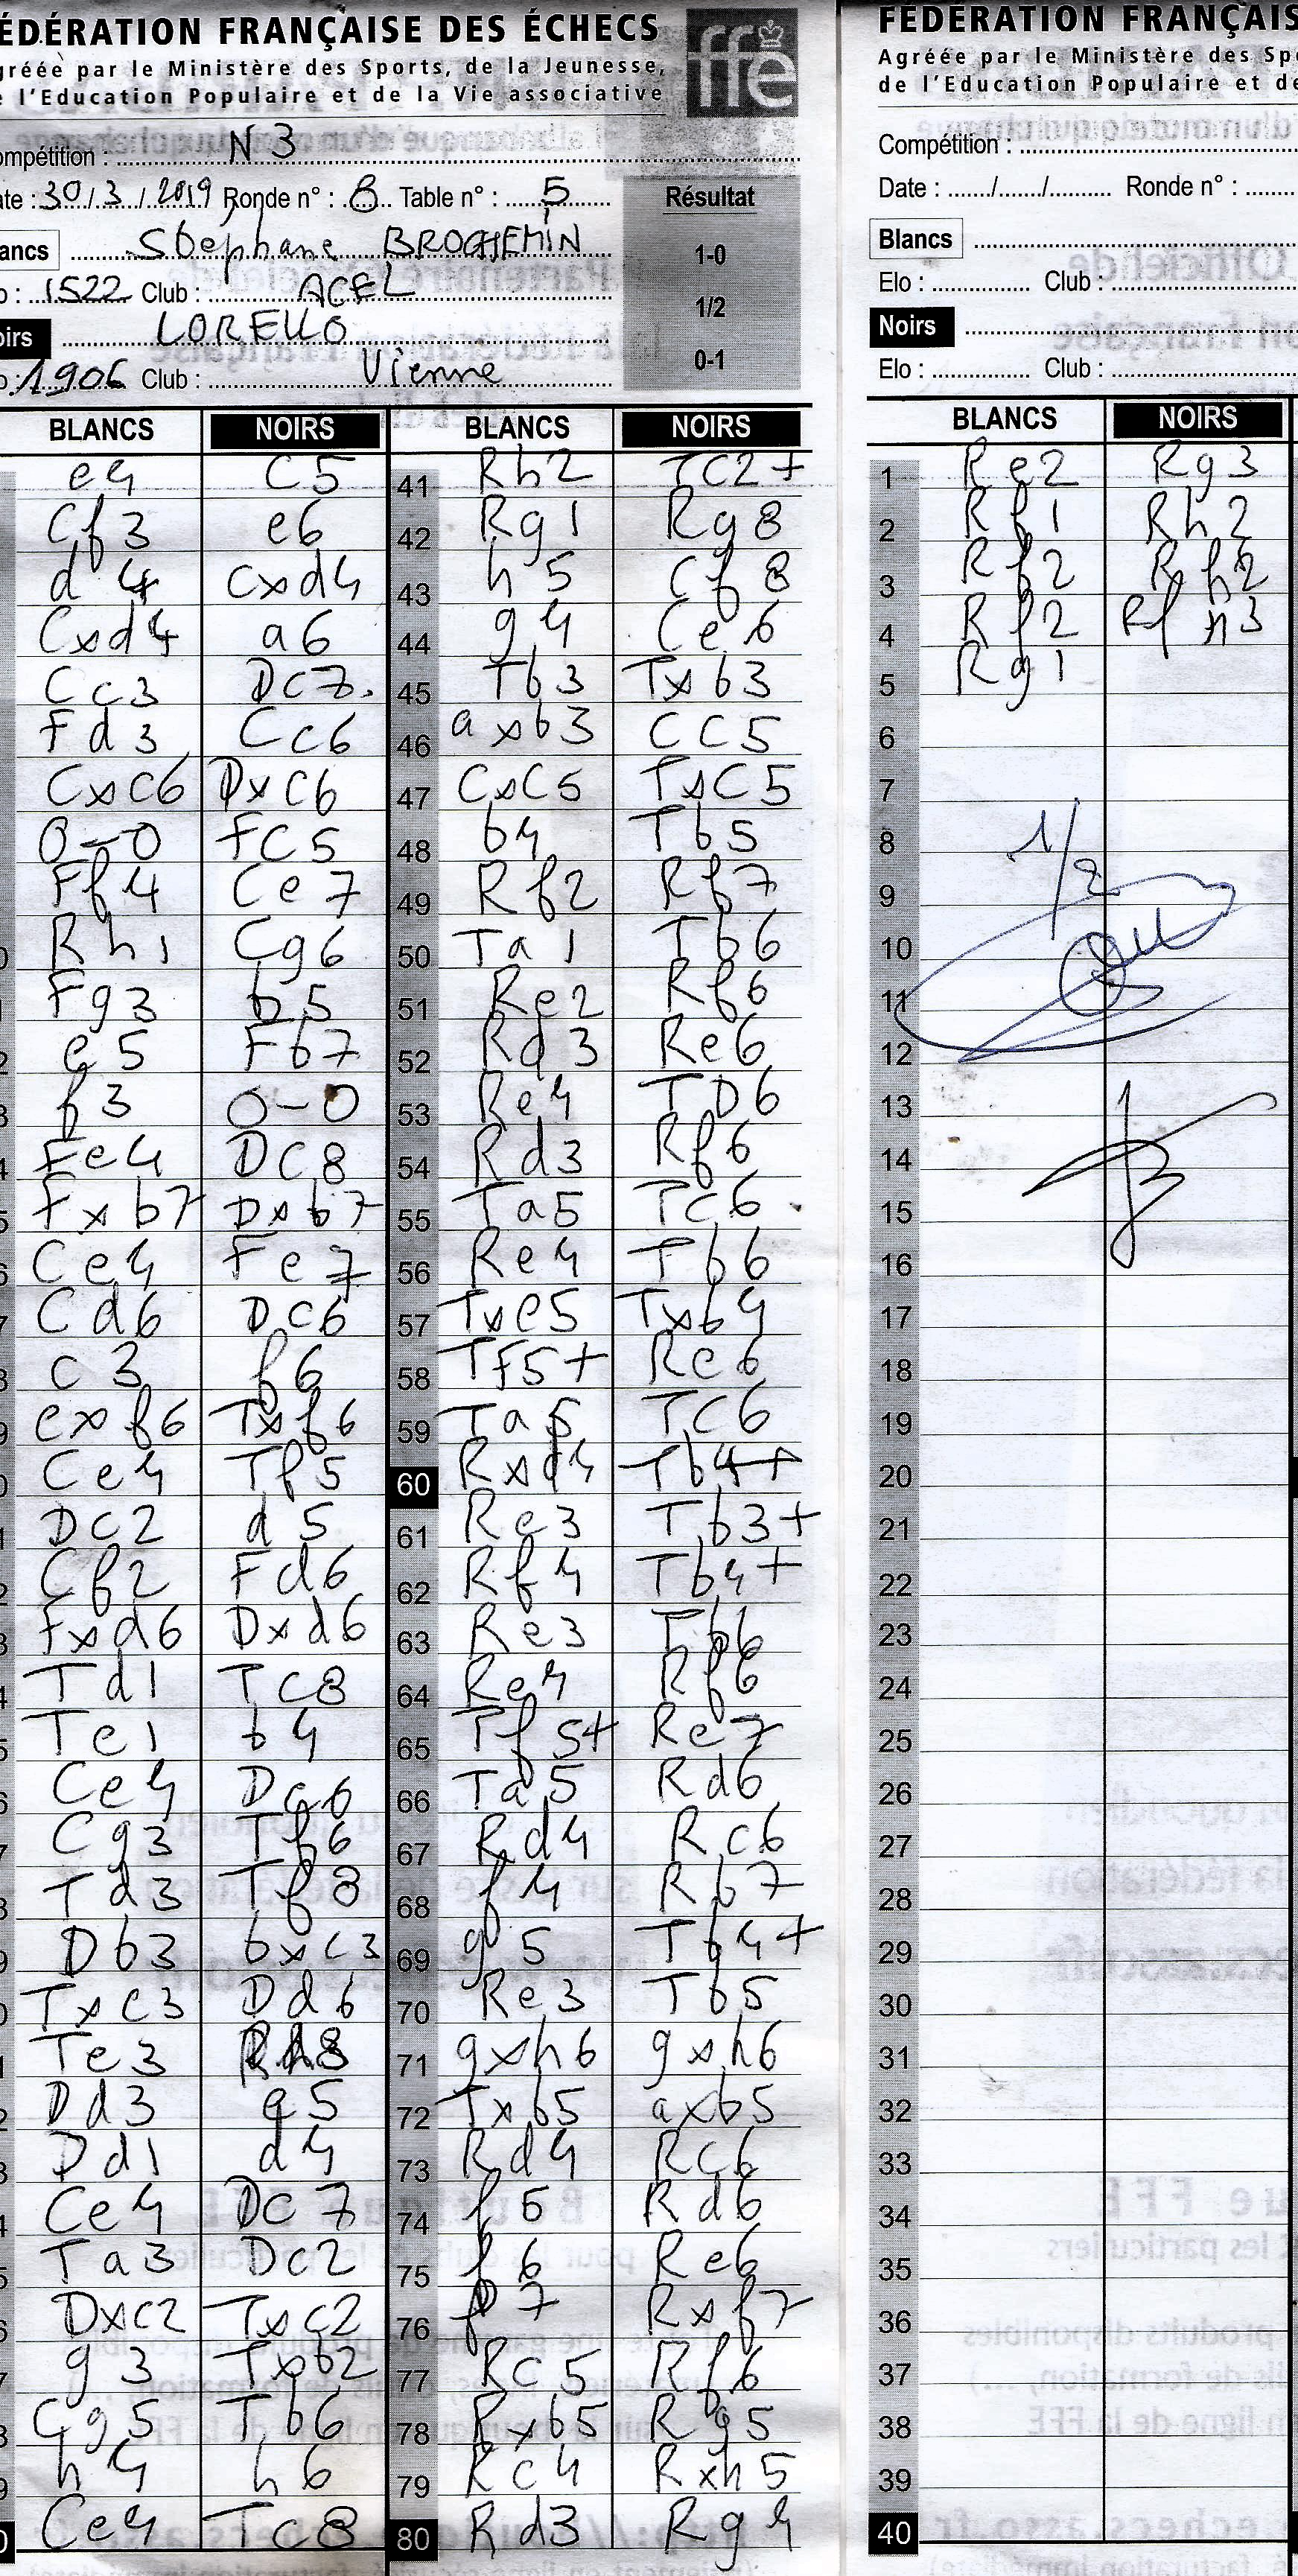 FÉDÉRATION FRANÇAISE DES ÉCHECS
Agréée par le Ministère des Sports, de la Jeunesse,
de l'Education Populaire et de la Vie associative
ffe
Compétition : N3
Date : 30/3/2019 Ronde n° : 8 Table n° : 5
Résultat
Blancs Stéphane BROCHEMIN
1-0
Elo : 1522 Club : ACEL
1/2
Noirs LORELLO
0-1
Elo : 1906 Club : Vienne
BLANCS NOIRS
e4 c5
Cf3 e6
d4 cxd4
Cxd4 a6
Cc3 Dc7.
Fd3 Cc6
Cxc6 Dxc6
0-0 Fc5
Ff4 Ce7
Rh1 Cg6
Fg3 b5
e5 Fb7
f3 0-0
Fe4 Dc8
Fxb7 Dxb7
Ce4 Fe7
Cd6 Dc6
c3 f6
exf6 Txf6
Ce4 Tf5
Dc2 d5
Cf2 Fd6
Fxd6 Dxd6
Td1 Tc8
Te1 b4
Ce4 Dc6
Cg3 Tf6
Td3 Tf8
Db3 bxc3
Txc3 Dd6
Te3 Rh8
Dd3 e5
Dd1 d4
Ce4 Dc7
Ta3 Dc2
Dxc2 Txc2
g3 Txb2
Cg5 Tb6
h4 h6
Ce4 Tc8
BLANCS NOIRS
41 Rh2 Tc2+
42 Rg1 Rg8
43 h5 Cf8
44 g4 Ce6
45 Tb3 Txb3
46 axb3 Cc5
47 Cxc5 Txc5
48 b4 Tb5
49 Rf2 Rf7
50 Ta1 Tb6
51 Re2 Rf6
52 Rd3 Re6
53 Re4 TD6
54 Rd3 Rf6
55 Ta5 Tc6
56 Re4 Tb6
57 Txe5 Txb4
58 Tf5+ Re6
59 Ta5 Tc6
60 Rxd4 Tb4+
61 Re3 Tb3+
62 Rf4 Tb4+
63 Re3 Tb6
64 Re4 Rf6
65 Tf5+ Re7
66 Ta5 Rd6
67 Rd4 Rc6
68 f4 Rb7
69 g5 Tb4+
70 Re3 Tb5
71 gxh6 gxh6
72 Txb5 axb5
73 Rd4 Rc6
74 f5 Rd6
75 f6 Re6
76 f7 Rxf7
77 Rc5 Rf6
78 Rxb5 Rg5
79 Rc4 Rxh5
80 Rd3 Rg4
FÉDÉRATION FRANÇAIS
Agréée par le Ministère des Sp
de l'Education Populaire et de
Compétition :
Date : Ronde n° :
Blancs
Elo : Club :
Noirs
Elo : Club :
BLANCS NOIRS
1 Re2 Rg3
2 Rf1 Rh2
3 Rf2 Rh2
4 Rf2 Rh3
5 Rg1
6
7
8
1/2
9
10
11
12
13
14
15
16
17
18
19
20
21
22
23
24
25
26
27
28
29
30
31
32
33
34
35
36
37
38
39
40